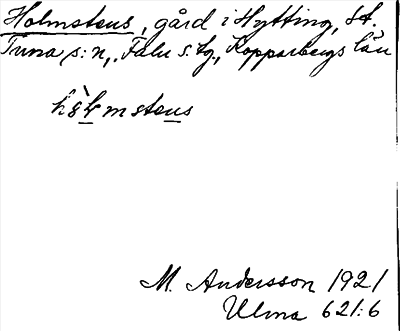 Holmstens, gård i Hytting, St.
Tuna s:n, Falu s. tg., Kopparbergs län
hòlmstens
M. Andersson 1921
Ulma 621:6